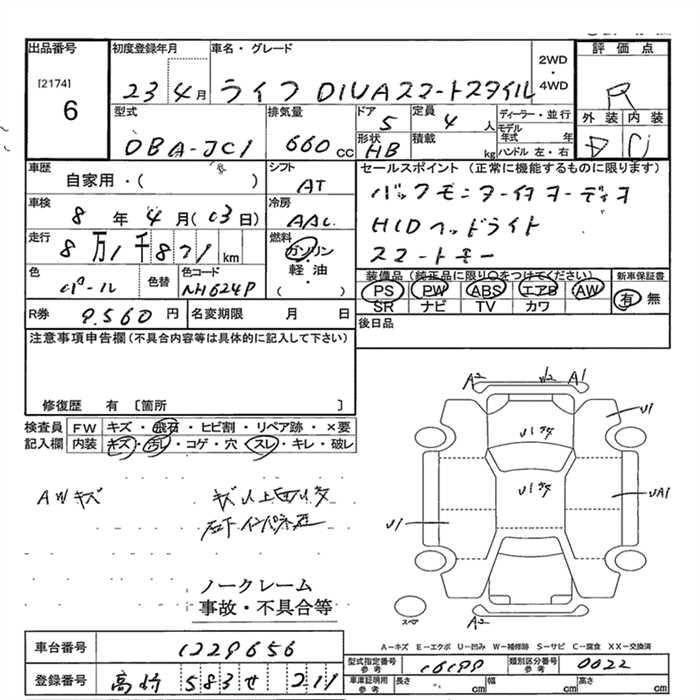 出品番号 初度登録年月 車名・グレード 評価点
[2174] 6 23 4月 ライフ DIVAスマートスタイル 2WD・4WD R
型式 排気量 ドア 定員 ディーラー・並行 外装 内装
DBA-JC1 660cc 5 4人 モデル年式 年
形状 HB 積載 kg ハンドル 左・右
車歴 シフト セールスポイント (正常に機能するものに限ります)
自家用・( ) AT バックモニターイヤヨーディオ
車検 冷房 HIDヘッドライト
8年4月(13日) AAC スマートキー
走行 燃料
8万1千871km ガソリン・軽油・( )
装備品(純正品に限り○をつけてください) 新車保証書
色 色替 色コード PS PW ABS エアB AW 有 無
パール NH624P SR ナビ TV カワ
R券 9.560円 名変期限 月 日 後日品
注意事項申告欄(不具合内容等は具体的に記入して下さい)
修復歴 有 〔箇所 〕
検査員 FW キズ・飛石・ヒビ割・リペア跡・×要
記入欄 内装 キズ・汚レ・コゲ・穴・スレ・キレ・破レ
A2 W2 A1
U1
AWキズ
U1
UA1
U1
ノークレーム
事故・不具合等
スペア
A2
A-キズ E-エクボ U-凹み W-補修跡 S-サビ C-腐食 XX-交換済
車台番号 1229656
型式指定番号 参考 16199 類別区分番号 参考 0022
登録番号 高崎 583 せ 211
車庫証明用 参考 長さ cm 幅 cm 高さ cm